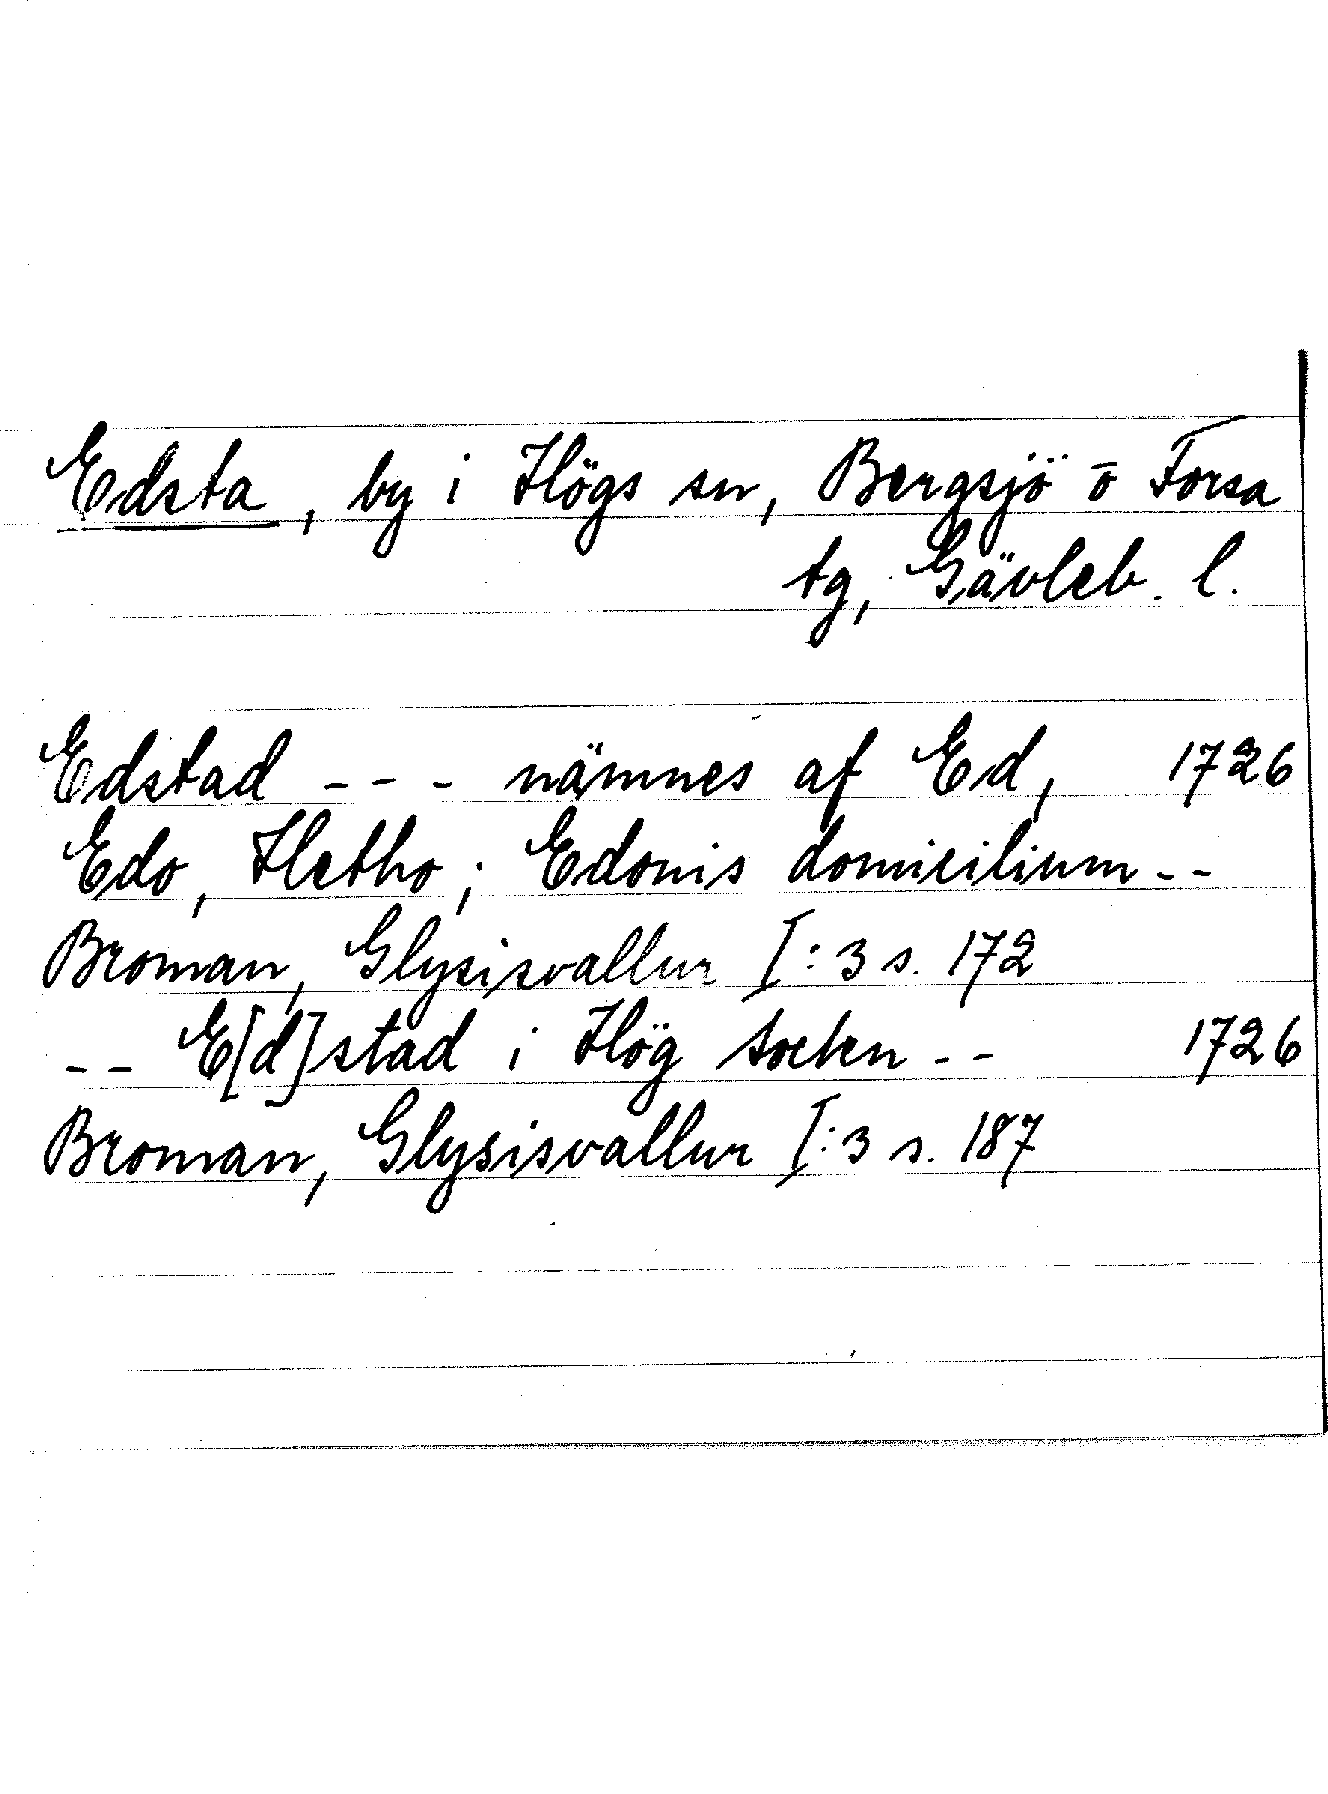 Edsta, by i Högs sn, Bergsjö o Forsa
tg, Gävleb. l.
Edstad - - - nämnes af Ed, 1726
Edo, Hetho; Edonis domicilium - -
Broman, Glysisvallur I:3 s. 172
- - E[d]stad i Hög socken - - 1726
Broman, Glysisvallur I:3 s. 187